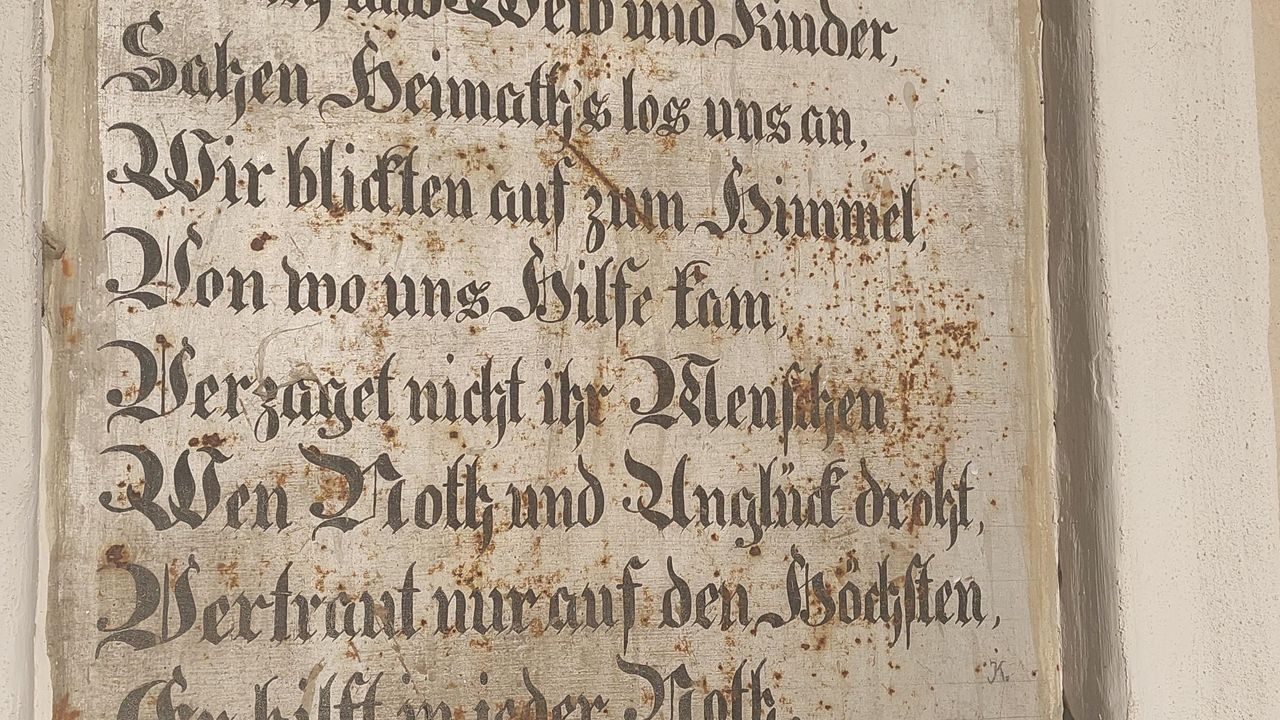 und Weib und Kinder,
Sahen Heimath's los uns an,
Wir blickten auf zum Himmel,
Von wo uns Hilfe kam,
Verzaget nicht ihr Menschen
Wen Noth und Unglück droht,
Vertraut nur auf den Höchsten,
K.
Er hilft in jeder Noth.